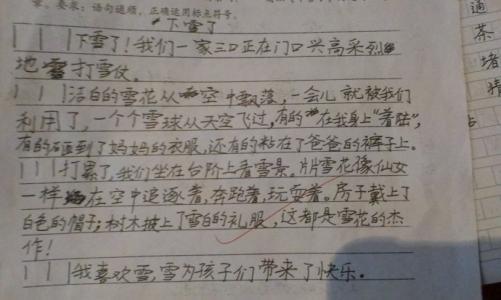 要求：语句通顺，正确运用标点符号。
下雪了
下雪了！我们一家三口正在门口兴高采烈
地打雪仗。
洁白的雪花从空中飘落，一会儿就被我们
利用了，一个个雪球从天空飞过，有的在我身上“着陆”，
有的砸到了妈妈的衣服，还有的粘在了爸爸的裤子上。
打累了，我们坐在台阶上看雪景。片片雪花像仙女
一样在空中追逐着，奔跑着，玩耍着。房子戴上了
白色的帽子；树木披上了雪白的礼服，这都是雪花的杰
作！
我喜欢雪，雪为孩子们带来了快乐。
通
茶
堵